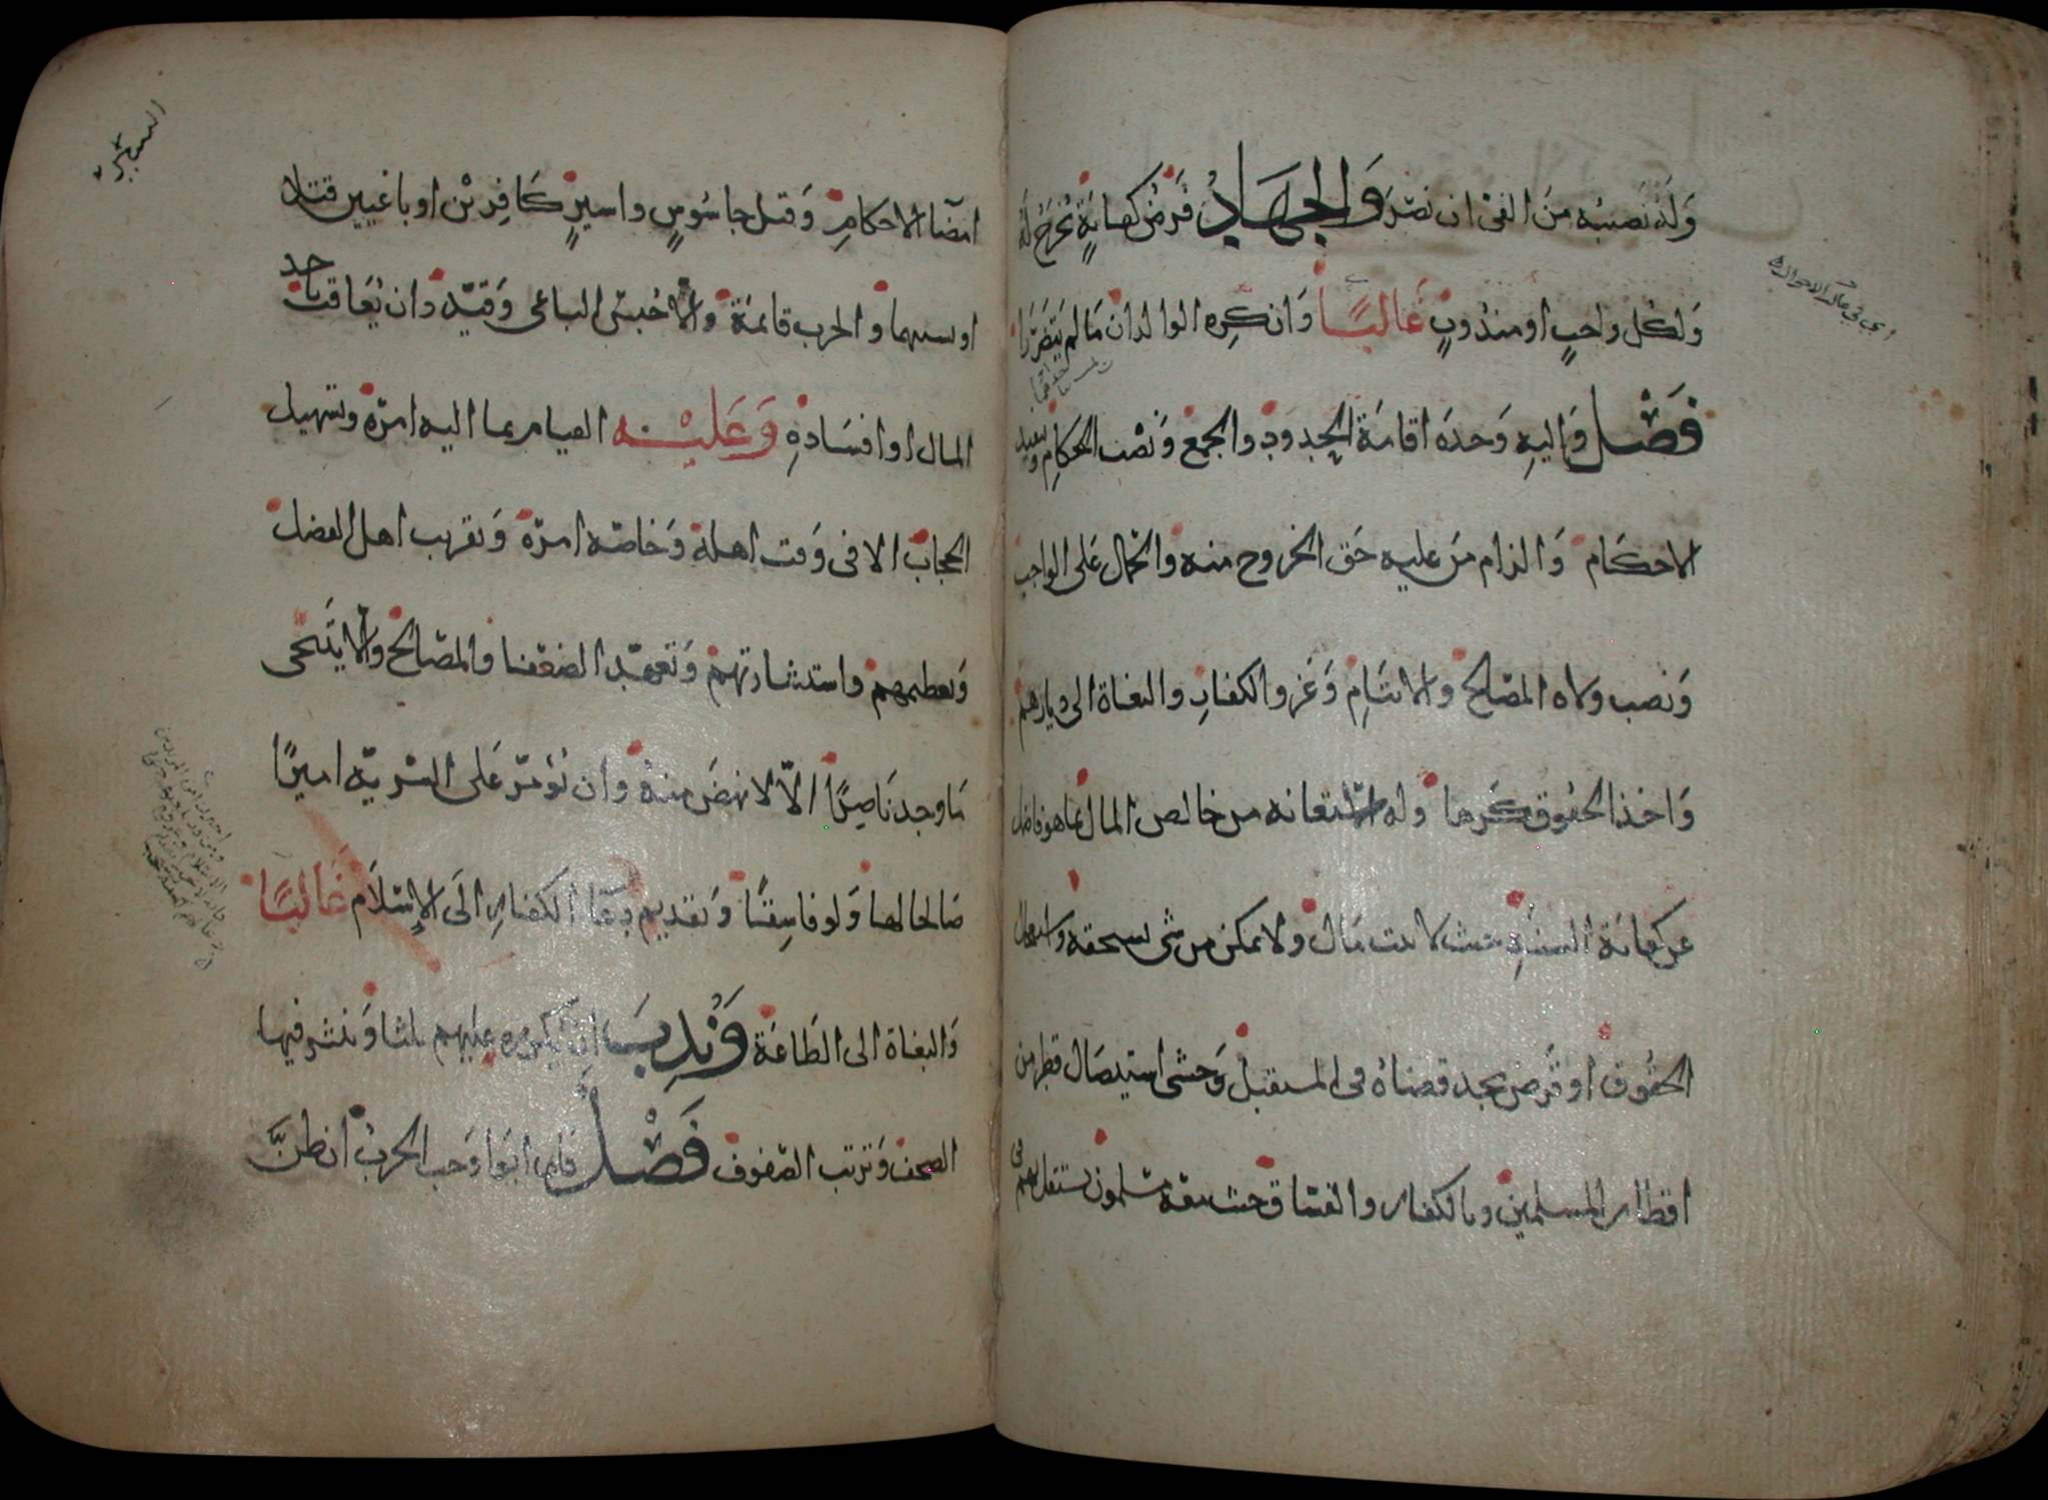 وَلَه نَصيبُه منَ الفئ ان نصَرَ وَالجِهَادُ فَرضُ كفايَةٍ يُخرَجُ لَهُ
وَلكل واجبٍ او مندُوبٍ غَالبًا وَان كرِه الوالدان مَا لم يتضَرَّرَا
فَصْل وَاليهِ وَحدَه اقامَةُ الحِدودِ والجمع وَنصْب الحكامِ وتنفيد
الاحكَام وَالزام مَن عليه حَق الخروج منه والحمل عَلى الواجب
وَنصب ولاه المصَالحِ والايتَامِ وَغَزو الكفارِ والبغاة الى ديارهمْ
وَاخذ الحقُوق كَرها وله الاستعانه من خالص المال بما هو فاضل
عن كفاية السنَةِ حيث لا بيت مَال ولا تمكن من شى يستحقه واستعجال
الحقُوق او قَرض يجد قضاهُ فى المستقبل وَخشى استيصَال قطر من
اقطار المسلمين وبالكفار والفسَاق حيث معَه مسْلمون يستقل بهم فى
امضَا الاحكامِ وَقتل جاسُوسٍ واسيرٍ كَافِريْن او باغيين قتلا
او بسببهما والحرب قائمَة والا حُبسَ الباغى وَقيّد وان يُعَاقبَ باخذ
المال او افسَادهِ وَعَليْه القيام بما اليه امرهُ وتسْهيل
الحجاب الا فى وَقت اهله وَخاصّه امره وَتقريب اهل الفضل
وَتعظيمهم واستشارتهمْ وَتعهّد الضعَفا والمصَالح والا يتَنَحى
مَا وجد نَاصِرًا الاّ لانهَض منهُ وان يُؤمّرَ عَلى السَّريّه اميرًا
صَالحا لها وَلو فاسِقًا وَتقديم دعَا الكفارِ الَى الإِسْلاَم غَالبًا
وَالبغاة الى الطَاعَة وَنُدِبَ ان يُكَرره عليهم ثلثا وَينشر فيها
الصحف وَترتب الصّفوف فَصْل فان ابَوا وَجب الحَربُ ان ظَنَّ